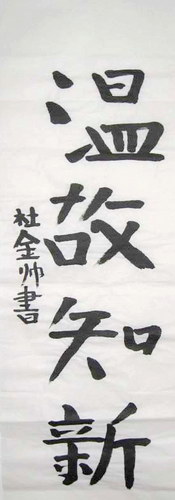 温故知新
杜金帅書